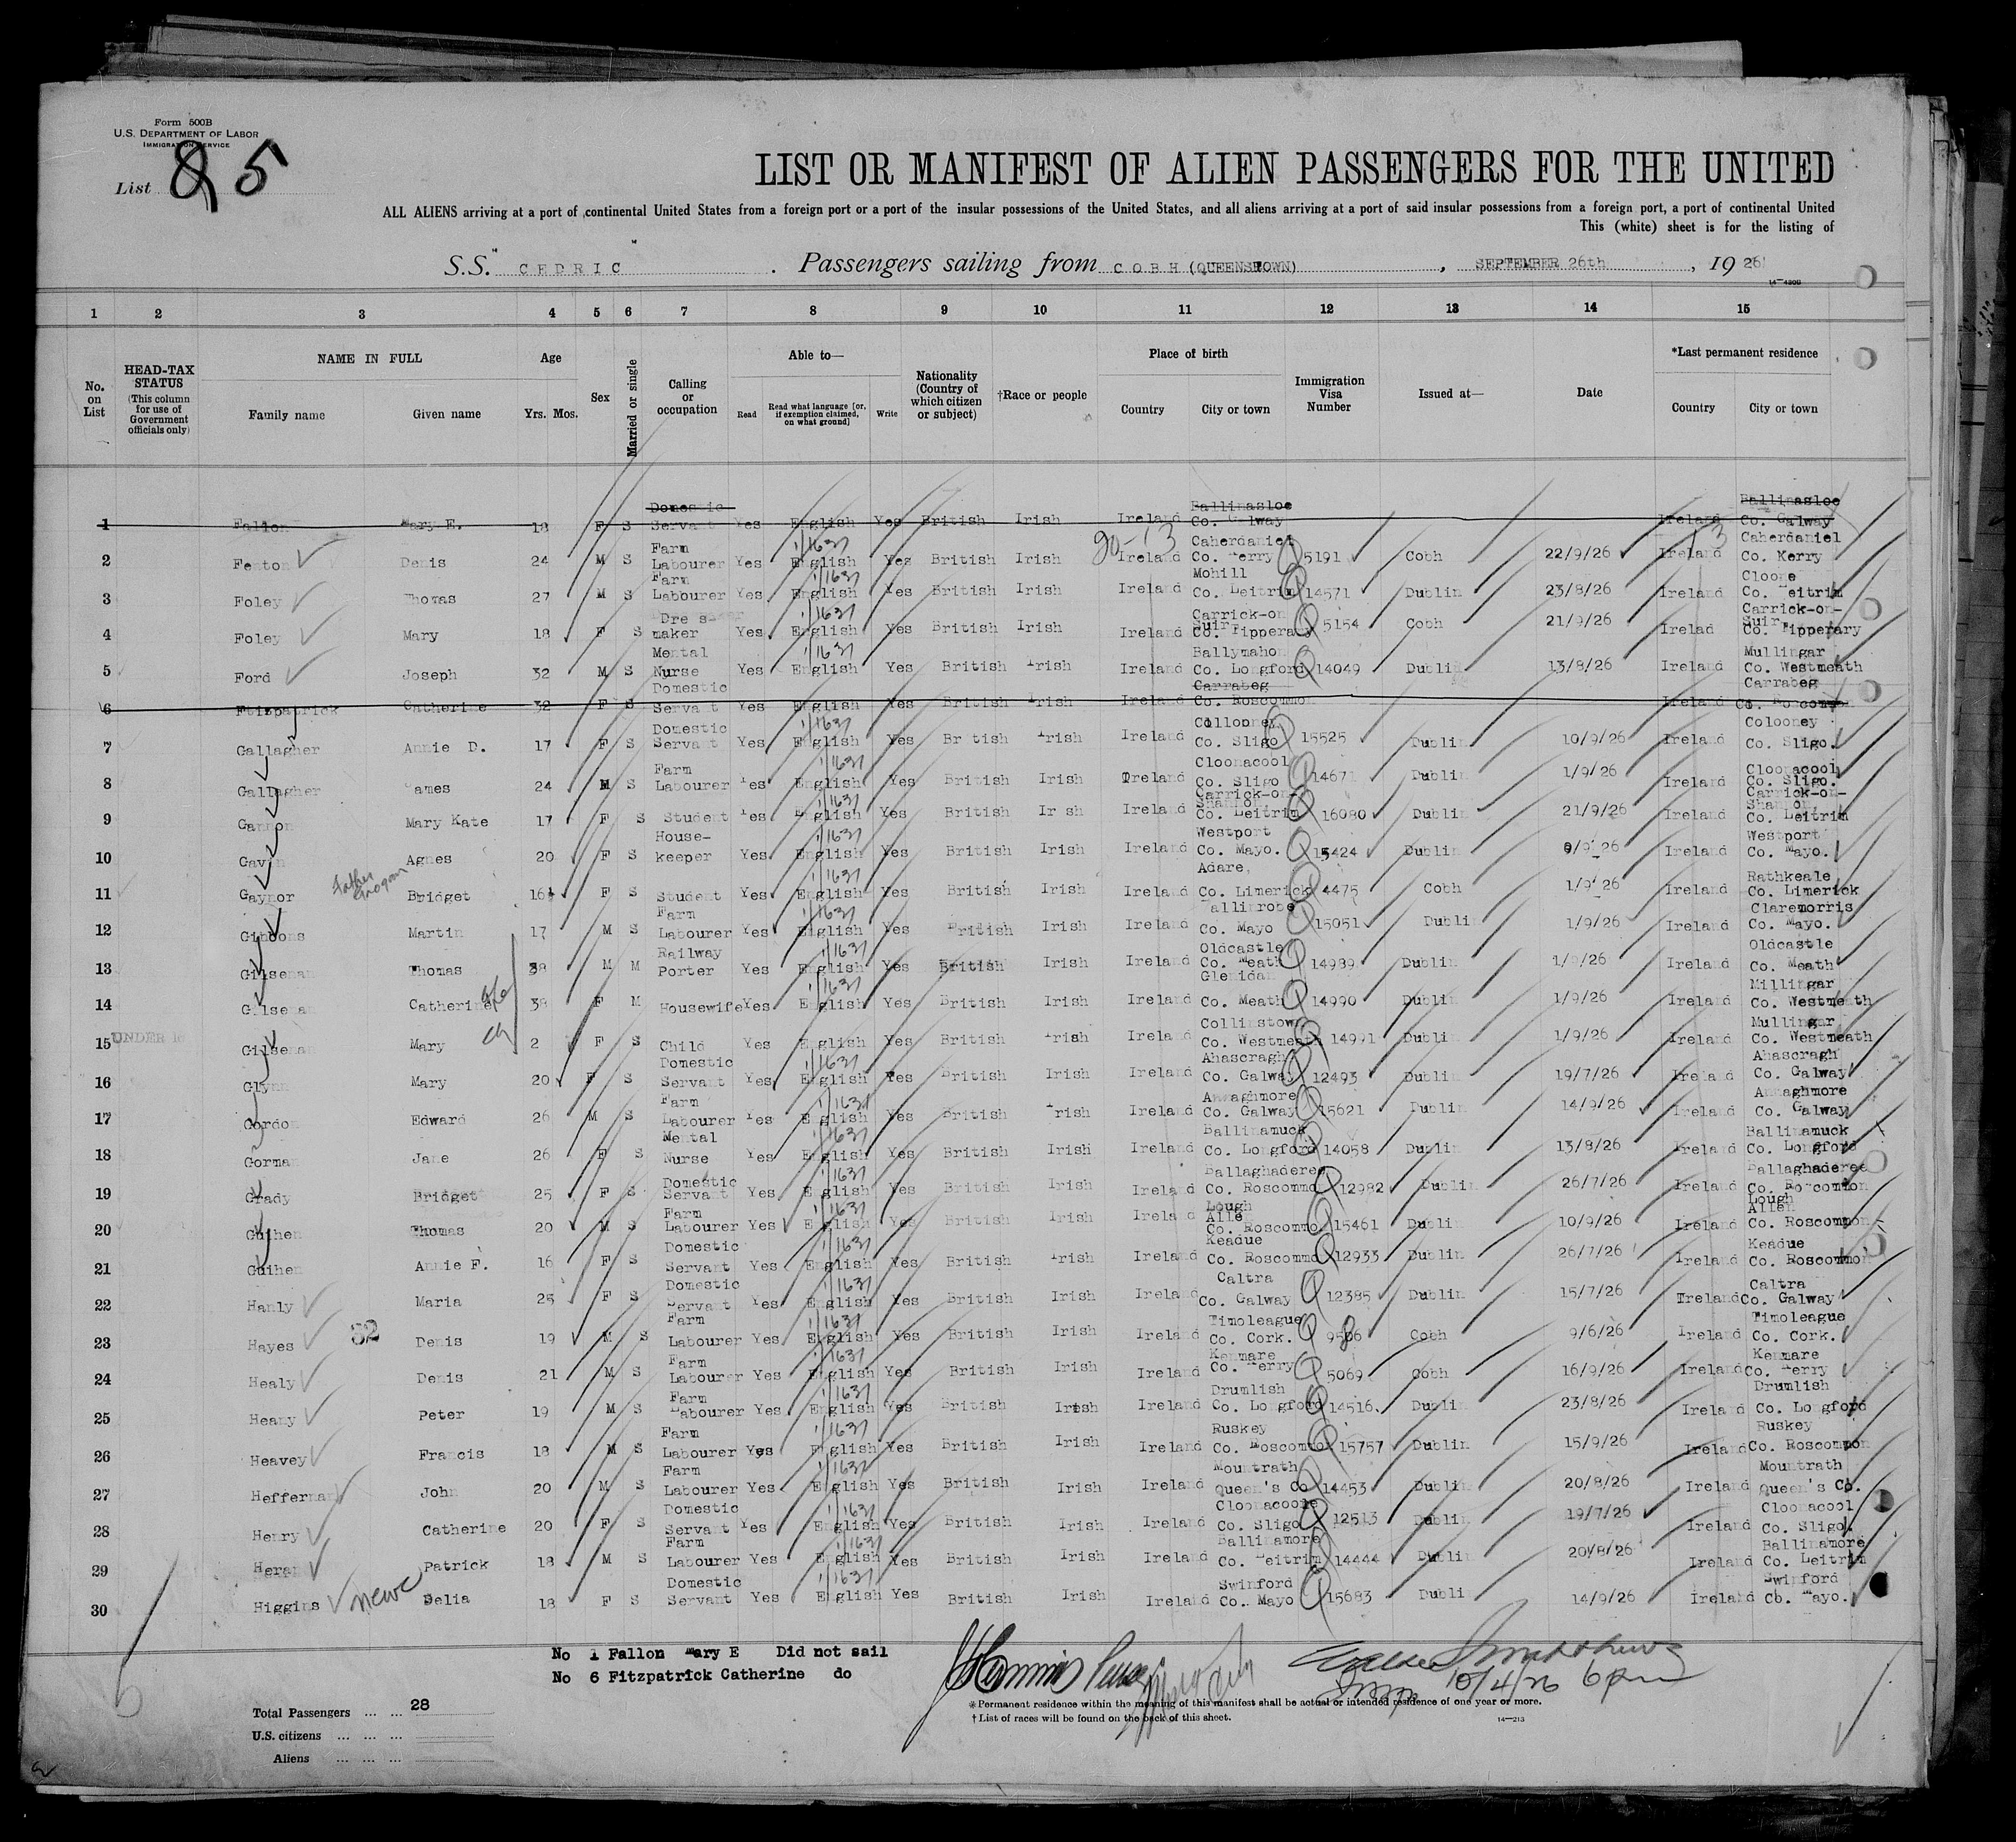 Form 500B
U.S. DEPARTMENT OF LABOR
IMMIGRATION SERVICE
List 85
LIST OR MANIFEST OF ALIEN PASSENGERS FOR THE UNITED
ALL ALIENS arriving at a port of continental United States from a foreign port or a port of the insular possessions of the United States, and all aliens arriving at a port of said insular possessions from a foreign port, a port of continental United
This (white) sheet is for the listing of
S.S. " CEDRIC " . Passengers sailing from COBH (QUEENSTOWN) , SEPTEMBER 26th , 19 26
14—4200
1 2 3 4 5 6 7 8 9 10 11 12 13 14 15
No. on List
HEAD-TAX STATUS (This column for use of Government officials only)
NAME IN FULL
Family name Given name
Age
Yrs. Mos.
Sex
Married or single
Calling or occupation
Able to—
Read
Read what language [or, if exemption claimed, on what ground]
Write
Nationality (Country of which citizen or subject)
†Race or people
Place of birth
Country City or town
Immigration Visa Number
Issued at—
Date
*Last permanent residence
Country City or town
1 Fallon Mary E. 18 F S Domestic Servant Yes English Yes British Irish Ireland Ballinasloe Co. Galway Ireland Ballinasloe Co. Galway
2 Fenton Denis 24 M S Farm Labourer Yes English Yes British Irish Ireland Caherdaniel Co. Kerry 5191 Cobh 22/9/26 Ireland Caherdaniel Co. Kerry
3 Foley Thomas 27 M S Farm Labourer Yes English Yes British Irish Ireland Mohill Co. Leitrim 14571 Dublin 23/8/26 Ireland Cloone Co. Leitrim
4 Foley Mary 18 F S Dressmaker Yes English Yes British Irish Ireland Carrick-on-Suir, Co. Tipperary 5154 Cobh 21/9/26 Irelad Carrick-on-Suir, Co. Tipperary
5 Ford Joseph 32 M S Mental Nurse Yes English Yes British Irish Ireland Ballymahon Co. Longford 14049 Dublin 13/8/26 Ireland Mullingar Co. Westmeath
6 Fitzpatrick Catherine 32 F S Domestic Servant Yes English Yes British Irish Ireland Carrabeg Co. Roscommon Ireland Carrabeg Co. Roscommon
7 Gallagher Annie D. 17 F S Domestic Servant Yes English Yes British Irish Ireland Collooney Co. Sligo 15525 Dublin 10/9/26 Ireland Colooney Co. Sligo.
8 Gallagher James 24 M S Farm Labourer Yes English Yes British Irish Ireland Cloonacool Co. Sligo 14671 Dublin 1/9/26 Ireland Cloonacool Co. Sligo.
9 Gannon Mary Kate 17 F S Student Yes English Yes British Irish Ireland Carrick-on-Shannon, Co. Leitrim 16080 Dublin 21/9/26 Ireland Carrick-on-Shannon, Co. Leitrim
10 Gavin Agnes 20 F S House-keeper Yes English Yes British Irish Ireland Westport Co. Mayo. 15424 Dublin 9/9/26 Ireland Westport Co. Mayo.
11 Gaynor Bridget 16½ F S Student Yes English Yes British Irish Ireland Adare, Co. Limerick 4475 Cobh 1/9/26 Ireland Rathkeale Co. Limerick
12 Gibbons Martin 17 M S Farm Labourer Yes English Yes British Irish Ireland Ballinrobe Co. Mayo 15051 Dublin 1/9/26 Ireland Claremorris Co. Mayo.
13 Gilsenan Thomas 38 M M Railway Porter Yes English Yes British Irish Ireland Oldcastle Co. Meath 14989 Dublin 1/9/26 Ireland Oldcastle Co. Meath
14 Gilsenan Catherine 38 F M Housewife Yes English Yes British Irish Ireland Glenidan Co. Meath 14990 Dublin 1/9/26 Ireland Millingar Co. Westmeath
15 UNDER 16 Gilsenan Mary 2 F S Child Yes English Yes British Irish Ireland Collinstown Co. Westmeath 14991 Dublin 1/9/26 Ireland Mullingar Co. Westmeath
16 Glynn Mary 20 F S Domestic Servant Yes English Yes British Irish Ireland Ahascragh Co. Galway 12493 Dublin 19/7/26 Ireland Ahascragh Co. Galway
17 Gordon Edward 26 M S Farm Labourer Yes English Yes British Irish Ireland Annaghmore Co. Galway 15621 Dublin 14/9/26 Ireland Annaghmore Co. Galway
18 Gorman Jane 26 F S Mental Nurse Yes English Yes British Irish Ireland Ballinamuck Co. Longford 14058 Dublin 13/8/26 Ireland Ballinamuck Co. Longford
19 Grady Bridget 25 F S Domestic Servant Yes English Yes British Irish Ireland Ballaghadereen Co. Roscommon 12982 Dublin 26/7/26 Ireland Ballaghaderee Co. Roscommon
20 Guihen Thomas 20 M S Farm Labourer Yes English Yes British Irish Ireland Lough Alle Co. Roscommon 15461 Dublin 10/9/26 Ireland Lough Allen Co. Roscommon
21 Guihen Annie F. 16 F S Domestic Servant Yes English Yes British Irish Ireland Keadue Co. Roscommon 12933 Dublin 26/7/26 Ireland Keadue Co. Roscommon
22 Hanly Maria 25 F S Domestic Servant Yes English Yes British Irish Ireland Caltra Co. Galway 12385 Dublin 15/7/26 Ireland Caltra Co. Galway
23 Hayes 32 Denis 19 M S Farm Labourer Yes English Yes British Irish Ireland Timoleague Co. Cork. Cobh 9/6/26 Ireland Timoleague Co. Cork.
24 Healy Denis 21 M S Farm Labourer Yes English Yes British Irish Ireland Kenmare Co. Kerry 5069 Cobh 16/9/26 Ireland Kenmare Co. Kerry
25 Heany Peter 19 M S Farm Labourer Yes English Yes British Irish Ireland Drumlish Co. Longford 14516 Dublin 23/8/26 Ireland Drumlish Co. Longford
26 Heavey Francis 18 M S Farm Labourer Yes English Yes British Irish Ireland Ruskey Co. Roscommon 15757 Dublin 15/9/26 Ireland Ruskey Co. Roscommon
27 Heffernan John 20 M S Farm Labourer Yes English Yes British Irish Ireland Mountrath Queen's Co 14453 Dublin 20/8/26 Ireland Mountrath Queen's Co.
28 Henry Catherine 20 F S Domestic Servant Yes English Yes British Irish Ireland Cloonacoole Co. Sligo 12513 Dublin 19/7/26 Ireland Cloonacool Co. Sligo.
29 Heran Patrick 18 M S Farm Labourer Yes English Yes British Irish Ireland Ballinamore Co. Leitrim 14444 Dublin 20/8/26 Ireland Ballinamore Co. Leitrim
30 Higgins Delia 18 F S Domestic Servant Yes English Yes British Irish Ireland Swinford Co. Mayo 15683 Dublin 14/9/26 Ireland Swinford Co. Mayo.
No 1 Fallon Mary E Did not sail
No 6 Fitzpatrick Catherine do
10/4/26 6pm
Total Passengers ... ... 28
U.S. citizens ... ... ...
Aliens ... ... ...
* Permanent residence within the meaning of this manifest shall be actual or intended residence of one year or more.
† List of races will be found on the back of this sheet.
14—213